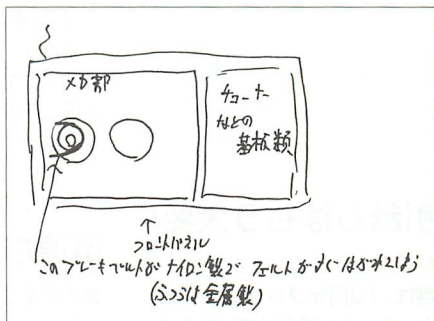 メカ部
チューナー
などの
基板類
↑
フロントパネル
このブレーキベルトがナイロン製で フェルトがすぐはがれてしまう
(ふつうは金属製)